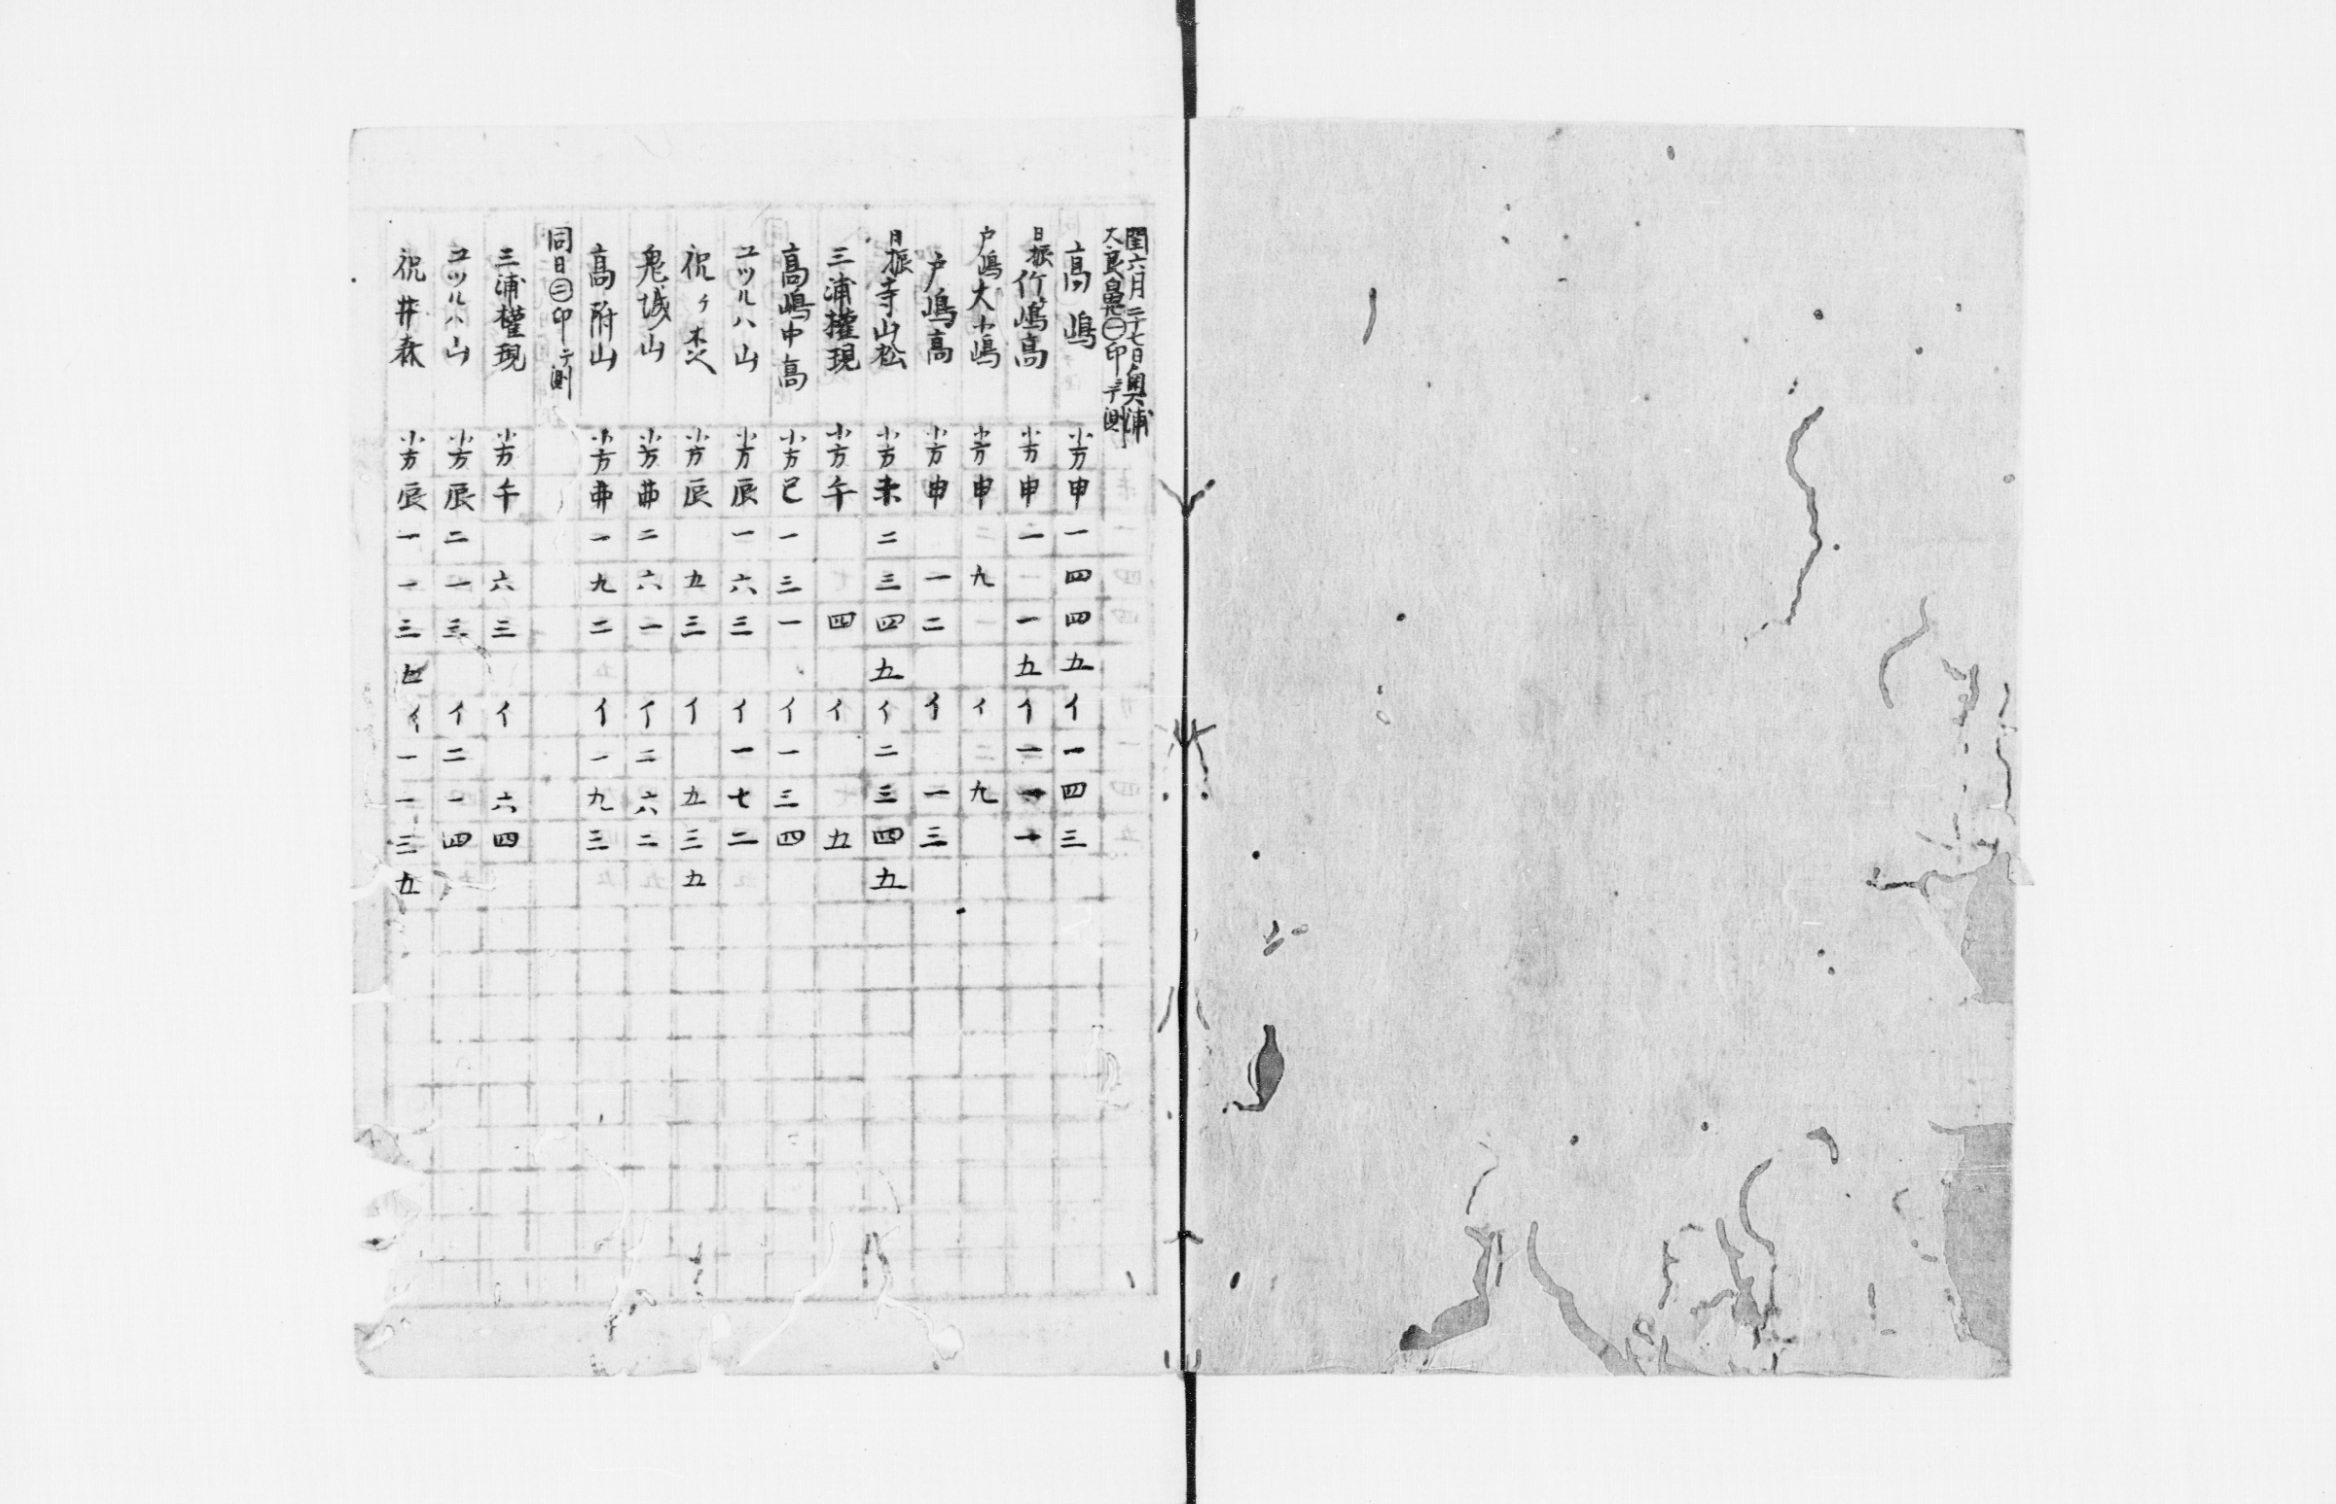 閏六月二十七日奥浦
大良鼻㊀印ニテ測
高嶋 小方申一四四五 イ一四三
日振竹嶋高 小方申一 一五 イ二一一
戸嶋大小嶋 小方申 九 イ 九
戸嶋高 小方申 一二 イ 一三
日振寺山松 小方未二三四五 イ二三四五
三浦権現 小方午 四 イ 五
高嶋中高 小方巳一三一 イ一三四
ユツルハ山 小方辰一六三 イ一七二
祝ケ 小方辰 五三 イ 五三五
鬼城山 小方丑二六一 イ二六二
高附山 小方丑一九二 イ一九三
同日㊁印ニテ測
三浦権現 小方午 六三 イ 六四
ユツルハ山 小方辰二一三 イ二一四
祝井森 小方辰一一三 イ一一三五